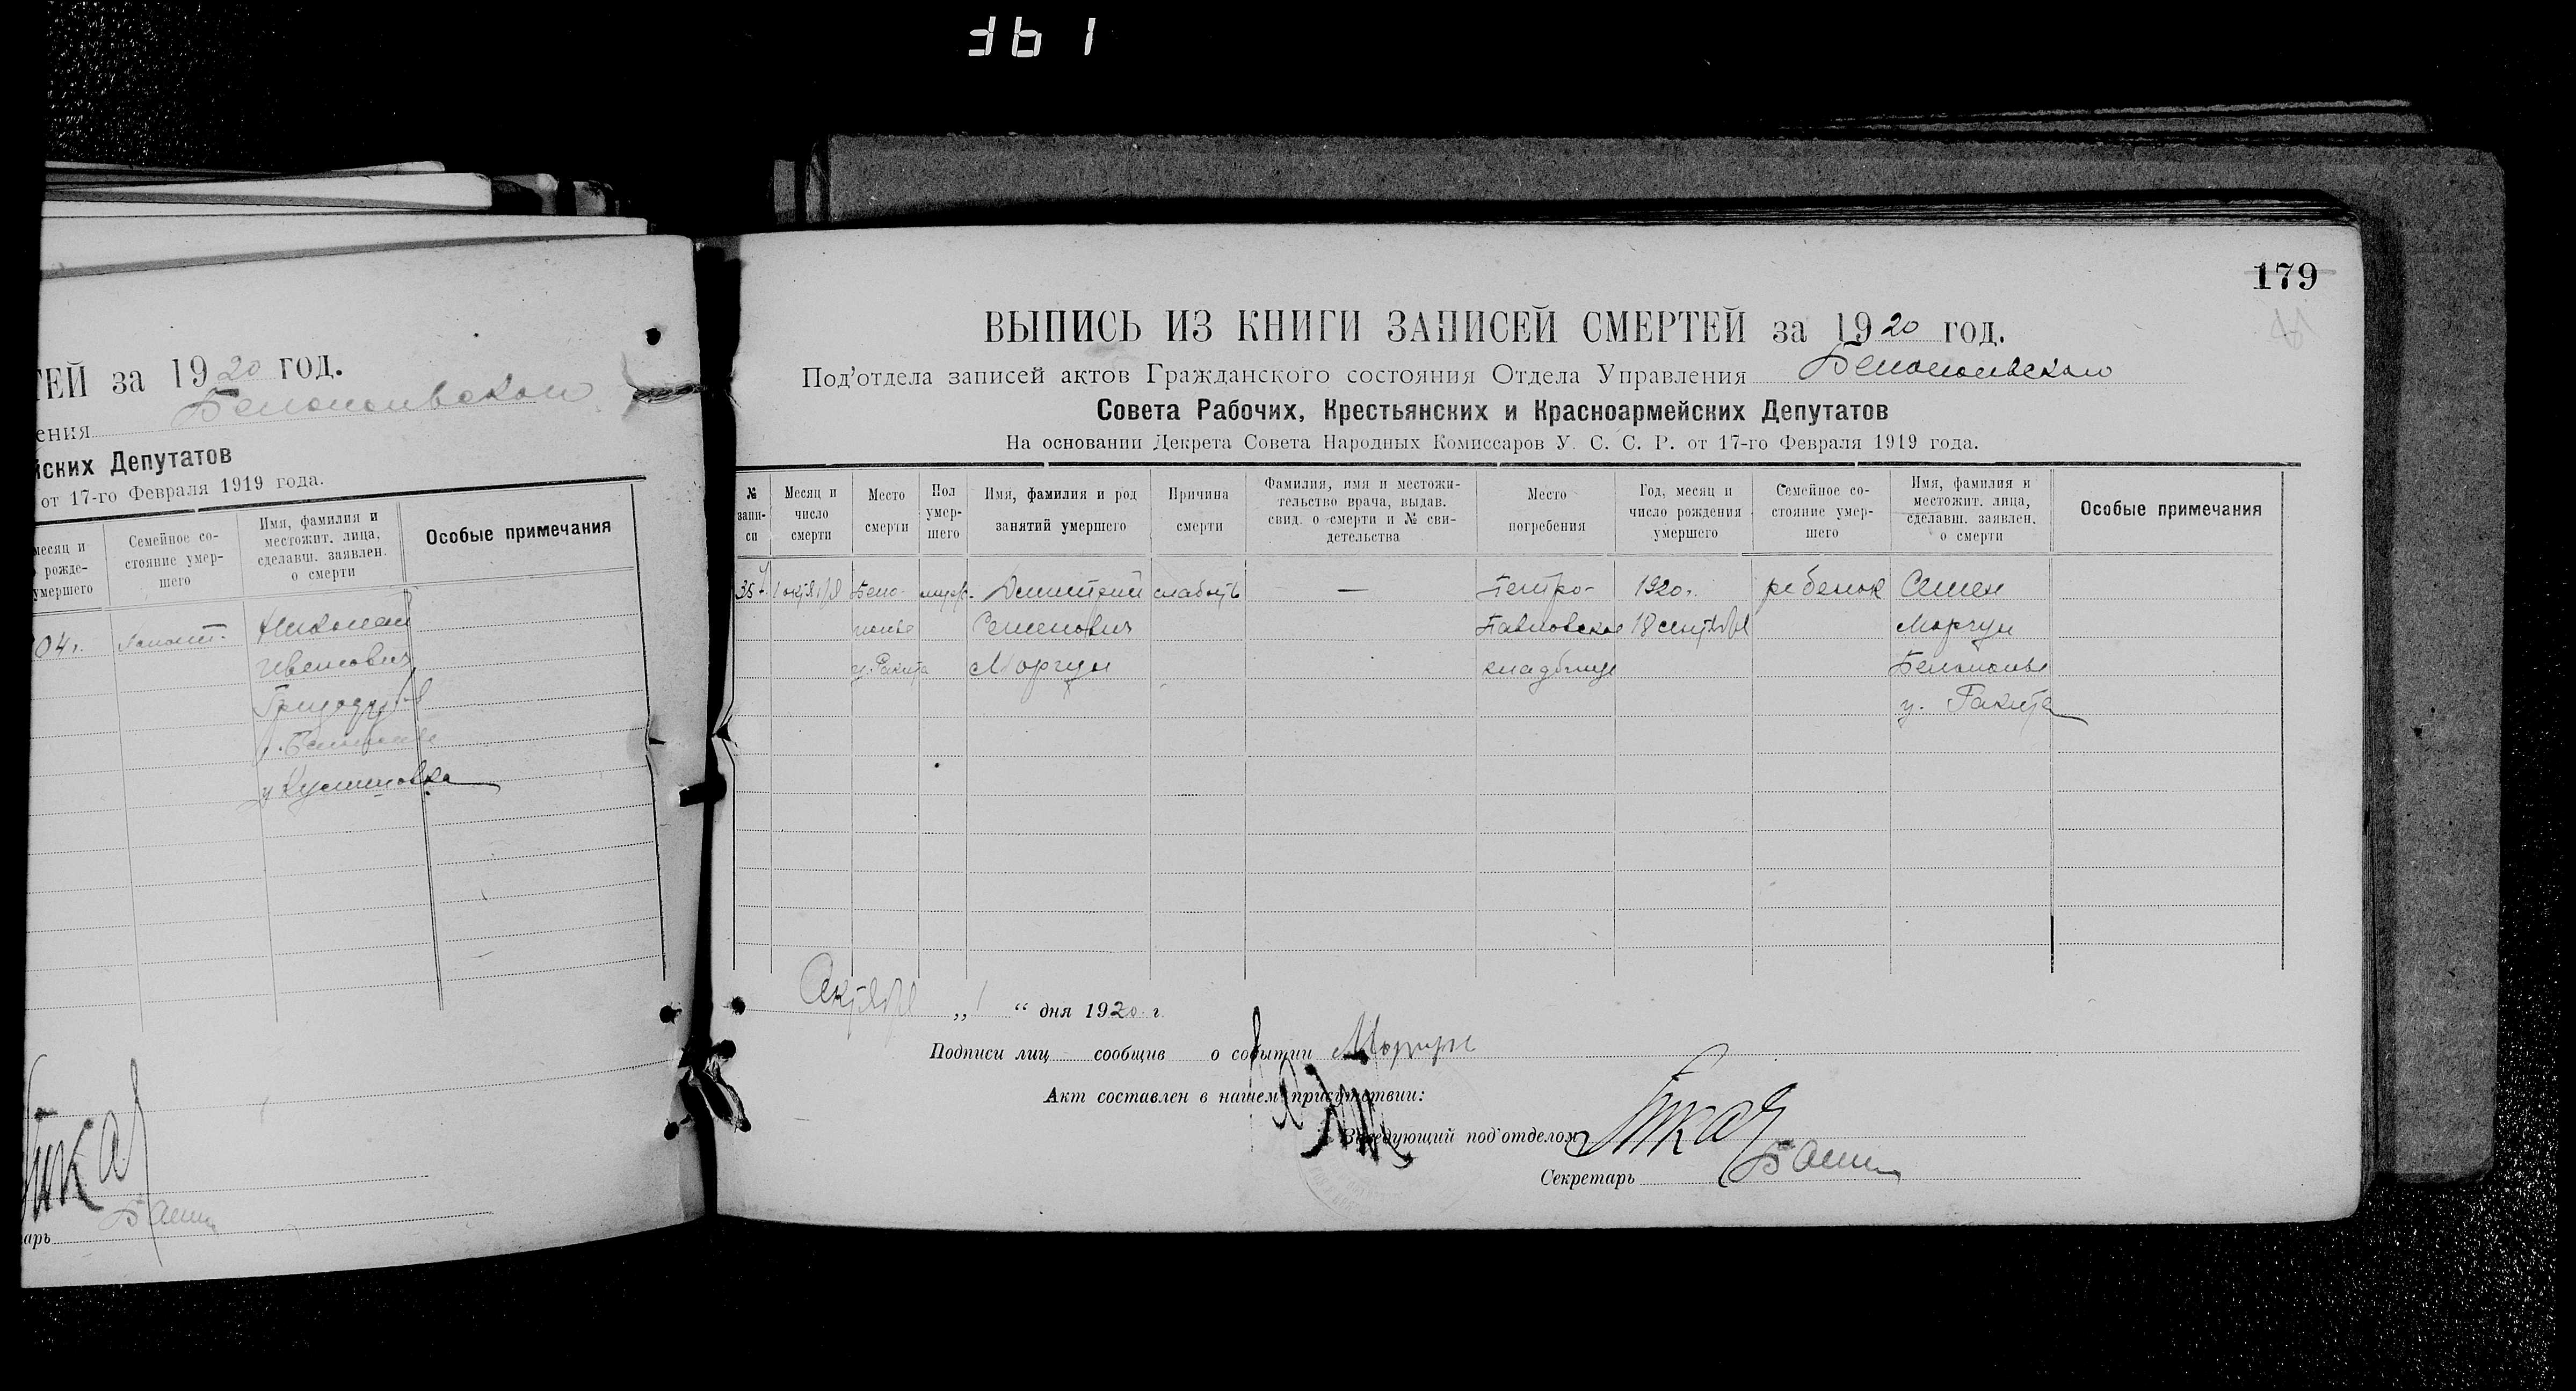 361
ТЕЙ за 1920 год.
ения Белопольского
йских Депутатов
от 17-го Февраля 1919 года.
месяц и
рожде-
умершего
Семейное со-
стояние умер-
шего
Имя, фамилия и
местожит. лица,
сделавш. заявлен.
о смерти
Особые примечания
04г. холост. Николай
Иванович
Белополье
арь
179
ВЫПИСЬ ИЗ КНИГИ ЗАПИСЕЙ СМЕРТЕЙ за 1920 год.
Под'отдела записей актов Гражданского состояния Отдела Управления Белопольского
Совета Рабочих, Крестьянских и Красноармейских Депутатов
На основании Декрета Совета Народных Комиссаров У. С. С. Р. от 17-го Февраля 1919 года.
№
запи-
си
Месяц и
число
смерти
Место
смерти
Пол
умер-
шего
Имя, фамилия и род
занятий умершего
Причина
смерти
Фамилия, имя и местожи-
тельство врача, выдав.
свид. о смерти и № сви-
детельства
Место
погребения
Год, месяц и
число рождения
умершего
Семейное со-
стояние умер-
шего
Имя, фамилия и
местожит. лица,
сделавш. заявлен.
о смерти
Особые примечания
1 октября Бело- муж. Димитрий слабость — Петро- 1920г. ребенок Семен
полье Семенович Павловское 18 сентября Моргун
у. Ракита Моргун кладбище Белополье
у. Ракита
Октября „1“ дня 1920 г.
Подписи лиц сообщив о событии Моргун
Акт составлен в нашем присутствии:
Заведующий под'отделом Ткач
Секретарь